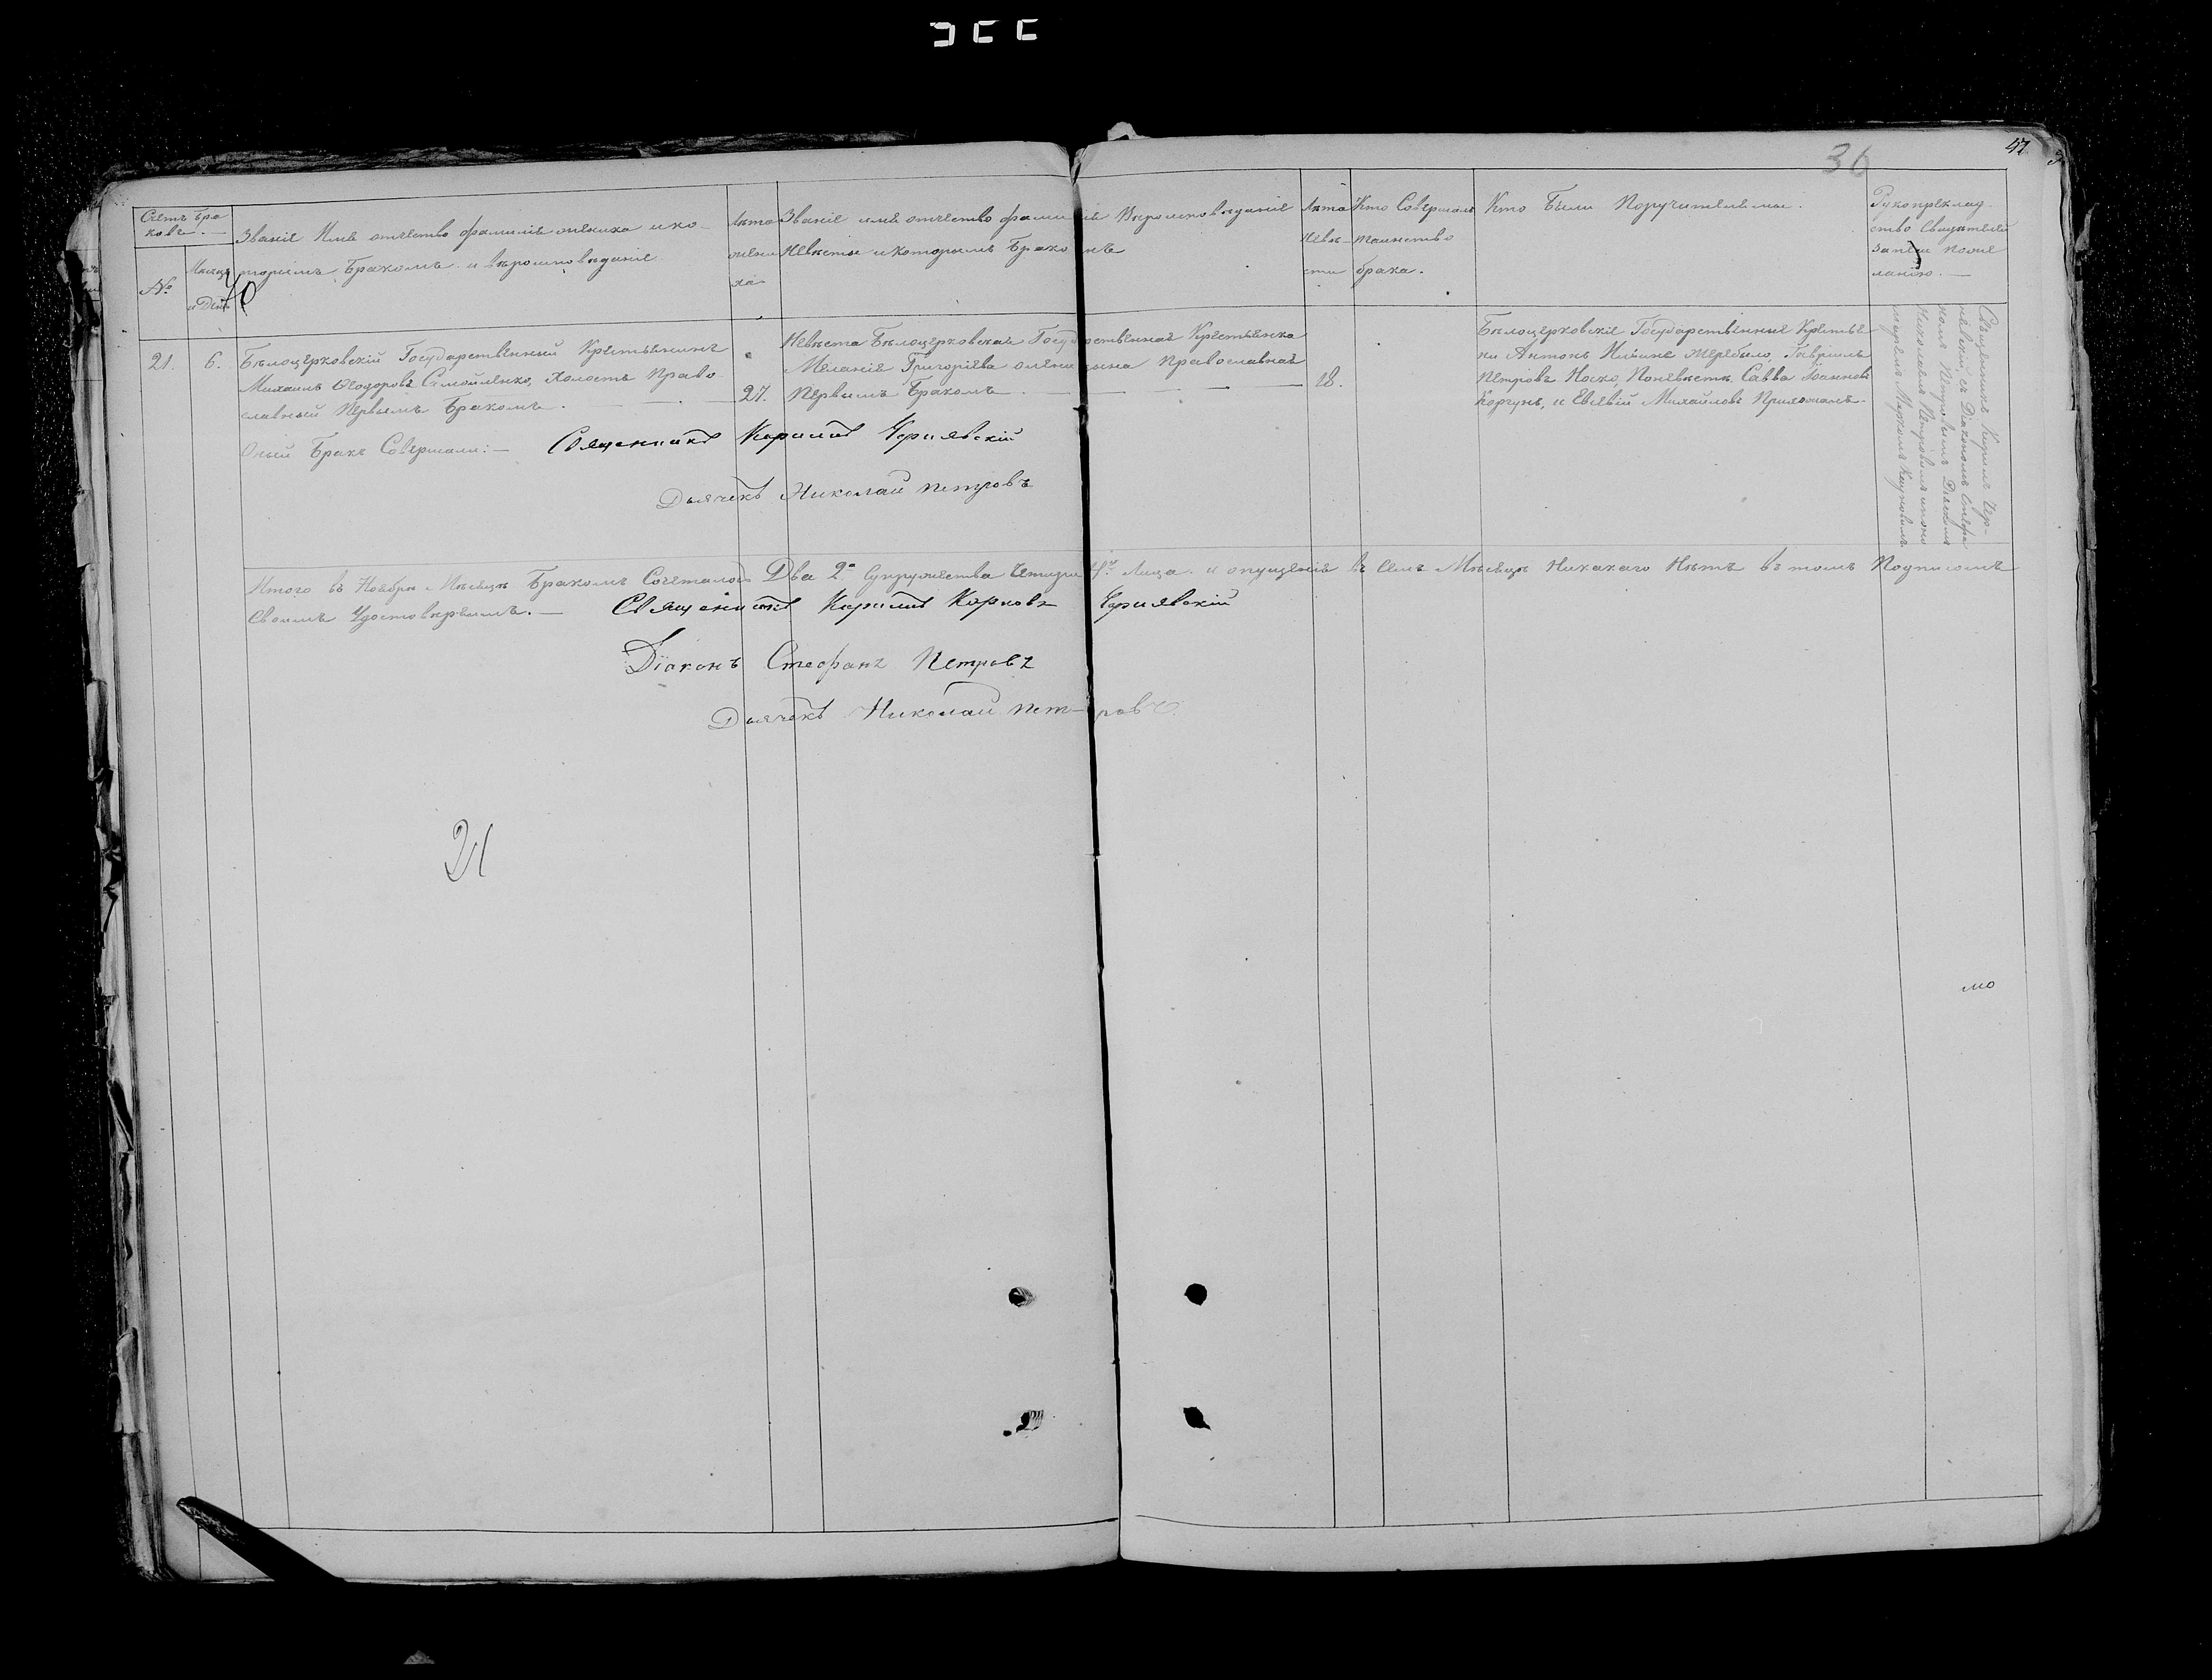 36
47
Счетъ бра
ковъ.
№
Месяцъ
и День
Званіе Имя отчество фамилія жениха и ко-
торымъ Бракомъ и вероисповеданіе
Лета
жени
ха
Званіе имя отчество фамилія Вероисповеданіе
Невесты и которымъ Бракомъ
Лета
Неве-
сты
Кто Совершалъ
таинство
брака.
Кто Были Поручителями.
Рукоприклад-
ство Свидетелей
записи по же
ланію.
21.
6.
Белоцерковскій Государственный Крестьянинъ
Михаилъ Феодоровъ Самойленко, Холостъ Право
славный Первымъ Бракомъ.
27.
Невеста Белоцерковская Государственная Крестьянка
Меланія Григоріева Православная
Первымъ Бракомъ.
18.
Белоцерковскіе Государственные Крестья
ни Антонъ Жеребыло, Гавріилъ
Петровъ Носко, По невесте Савва Іоанновъ
Коргунъ, и Евсевій Михайловъ
Священникъ Кирилъ Чер-
нявскій съ Діакономъ Стефа
номъ Петровымъ Дьячкомъ
Николаемъ Петровымъ и поно
маремъ
Оный Бракъ Совершали:— Священникъ Кирилъ Чернявскій
Дьячекъ Николай Петровъ
Итого въ Ноябре Месяце Бракомъ Сочеталось Два 2. Супружества Четыре 4. Лица. и опущенія въ Семъ Месяце Никакаго Нетъ въ томъ Подписомъ
Своимъ Удостоверяемъ.— Священникъ Кирилъ Карповъ Чернявскій
Діаконъ Стефанъ Петровъ
Дьячекъ Николай Петровъ
21
мо